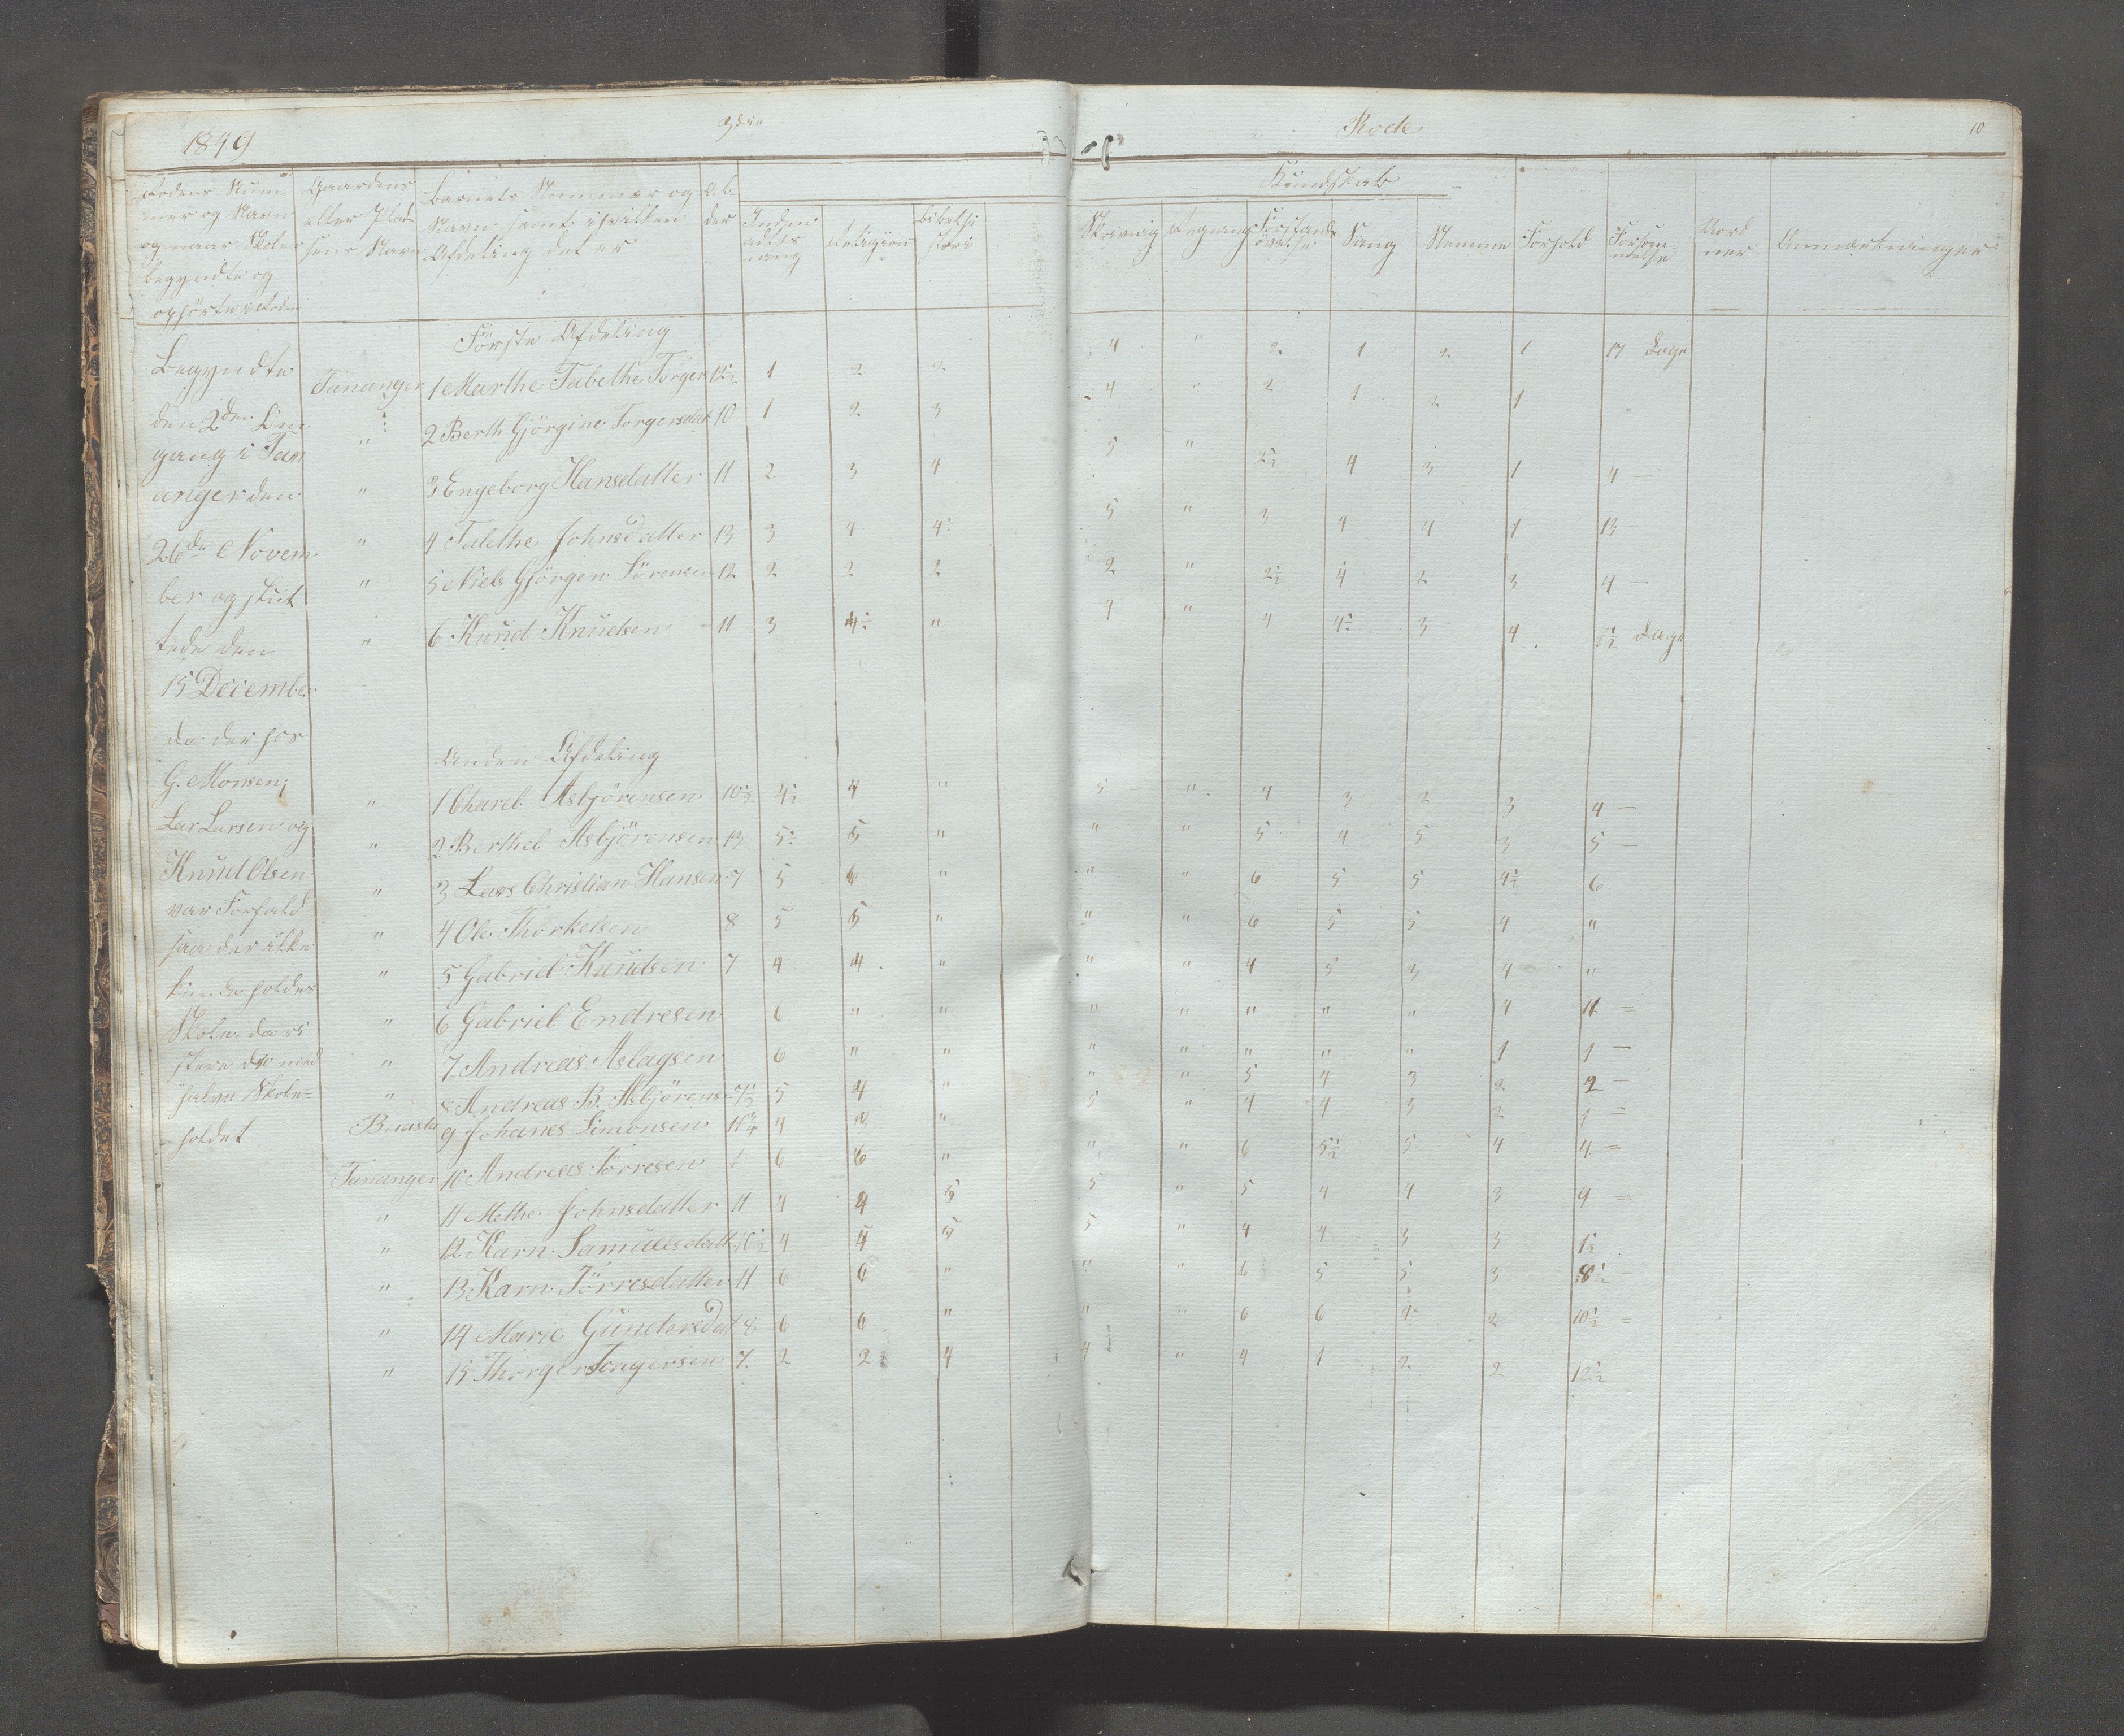 1849
3die
Rode
10
Rodens Num-
mer og Navn
og naar Skolen
begyndte og
ophørte
Gaardens
eller Plad-
sens Navn
Barnets Nummer og
Navn samt i hvilken
Afdeling det er
Al-
der
Religion
Kundskab
Skrivnig
Regning
Forstands
øvelse
Sang
Nemme
Forhold
Forsøm-
melse
Anmærkninger
Begyndte
den 2den Om
gang i Tan
anger den
26de Novem
ber og slut
tede den
15 December
da der hos
G. Monsen,
Lar Larsen og
Knud Olsen
var Forfald
saa der ikke
kunde holdes
Skole
holdet
Første Afdeling
Tananger 1 Marthe Tabethe Torgers 12½ 1 2 2 4 " 2 1 2 1 17 Dage
" 2 Berth Gjörgine Torgersdat 10 1 2 3 4 " 2 1 2 1
" 3 Engeborg Hansdatter 11 2 3 4 5 " 2½ 4 3 1 4 —
" 4 Talethe Johnsdatter 13 3 4 4 5 " 3 4 4 1 13
" 5 Niels Gjörgen Sörensen 12 2 2 2 2 " 2½ 4 2 3 4 —
" 6 Knud Knudsen 11 3 4½ " 4 " 4 4½ 3 4 Dage
Anden Afdeling
" 1 Charel Asbjörensen 10½ 4½ 4 " 5 " 4 3 2 3 4 —
" 2 Berthel Asbjörensen 13 5 5 " " " 5 4 5 3 5 —
" 3 Lars Christian Hansen 7 5 6 " " " 6 5 5 4½ 6
" 4 Ole Thorkelsen 8 5 5 " " " 6 5 5 4 "
" 5 Gabriel Knudsen 7 4 4 " " " 4 5 3 4 "
" 6 Gabriel Endresen 6 " " " " " " " 4 11 =
" 7 Andreas Aslagsen 6 " " " " " " " 1 1 —
" 8 Andreas B. Asbjörens 7½ 5 4 " " " 5 4 3 2 2 —
9 Johanes Simonsen 4 " 5 " 4 4 3 2 1 =
Tananger 10 Andreas Törresen 6 6 " " " 6 5½ 5 4 4 =
" 11 Methe Johnsdatter 11 4 4 5 5 " 5 4 4 3 9 =
" 12 Karn Samuelsdatt 10½ 4 4 5 5 " 4 4 3 3 1½
" 13 Karn Törresdatter 11 6 6 " " " 6 5 5 3 8½
" 14 Marie Gundersdat 8 6 6 " " " 6 6 4 2 10½ =
" 15 Thorger Torgersen 7 2 2 4 4 " 4 1 2 2 12½